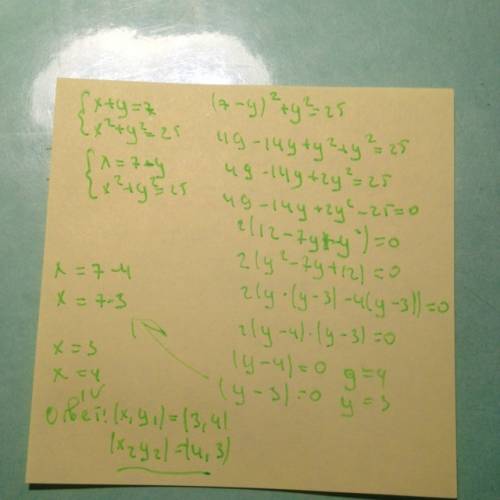 {x+y=7
{x²+y²=25
{x=7-y
{x²+y²=25
(7-y)²+y²=25
49-14y+y²+y²=25
49-14y+2y²=25
49-14y+2y²-25=0
2(12-7y+y²)=0
2(y²-7y+12)=0
2(y·(y-3)-4(y-3))=0
2(y-4)·(y-3)=0
(y-4)=0 y=4
(y-3)=0 y=3
x=7-4
x=7-3
x=3
x=4
Ответ: (x,y₁)=(3,4)
(x₂y₂)=(4,3)